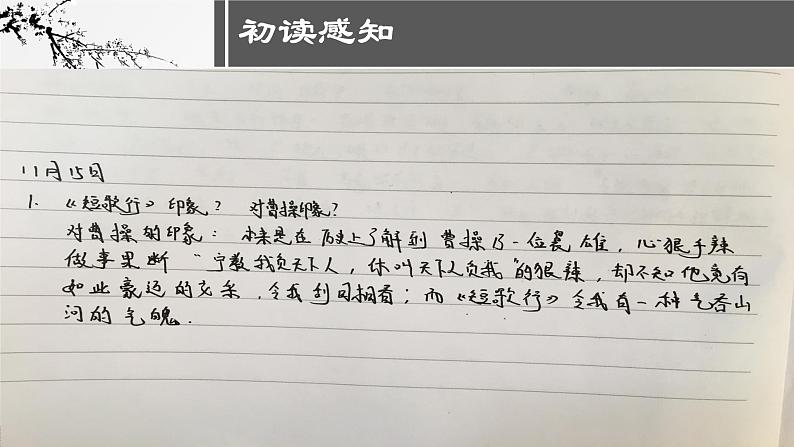 初读感知
11月15日
1. 《短歌行》印象? 对曹操印象?
对曹操的印象: 本来是在历史上了解到曹操乃一位枭雄, 心狠手辣
做事果断 "宁教我负天下人, 休叫天下人负我"的狠辣, 却不知他竟有
如此豪迈的文采, 令我刮目相看; 而《短歌行》令我有一种气吞山
河的气魄.